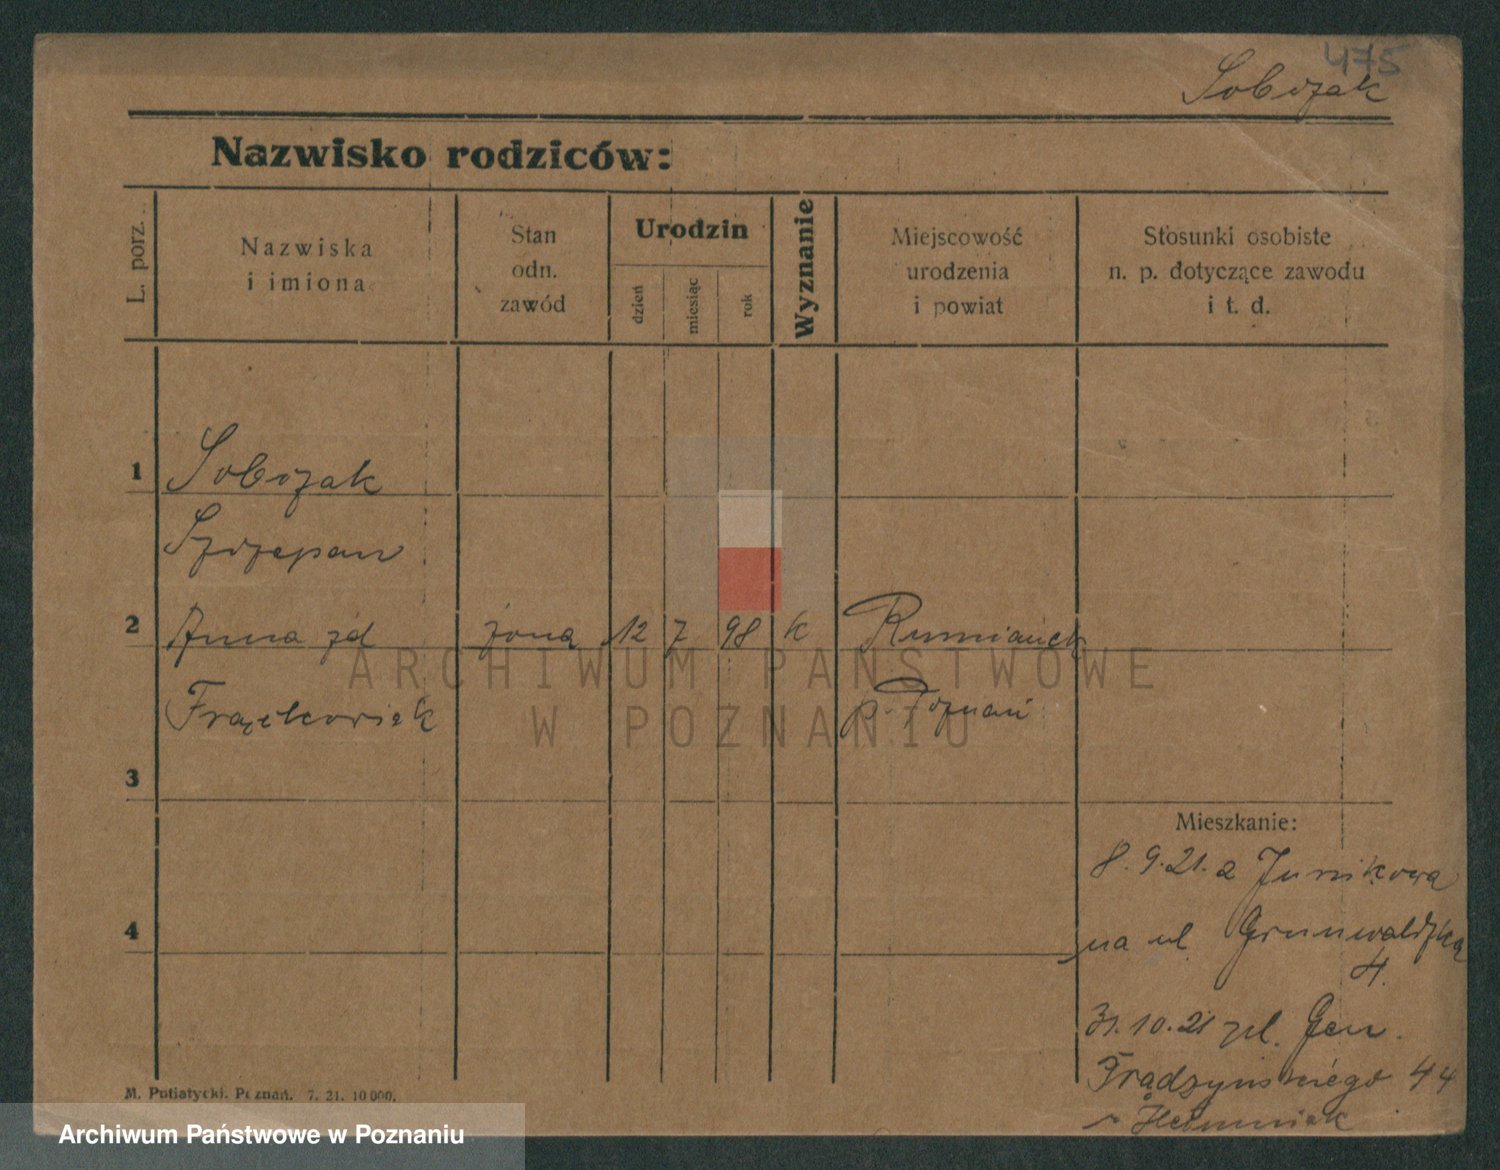 475
Sobczak
Nazwisko rodziców:
L. porz.
Nazwiska
i imiona
Stan
odn.
zawód
Urodzin
dzień
miesiąc
rok
Wyznanie
Miejscowość
urodzenia
i powiat
Stosunki osobiste
n. p. dotyczące zawodu
i t. d.
1 Sobczak
Szczepan
2 Anna zd żona 12 7 98 k Rumianek
Frąckowiak p. Poznań
3
Mieszkanie:
8.9.21. z Junikowa
4
na ul Grunwaldzką
4.
31.10.21 pl. Gen.
Prądzyńskiego 44
M. Putiatycki. Poznań. 7. 21. 10 000.
ARCHIWUM PAŃSTWOWE
W POZNANIU
Archiwum Państwowe w Poznaniu